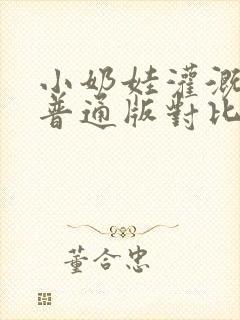 小奶娃灌溉
普通版對比
董合忠